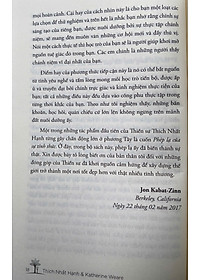 mọi hoàn cảnh. Cái hay của cách nhìn này là cho bạn một loạt các
lựa chọn để thử nghiệm và trên hết là nhắc bạn nhớ rằng chính sự
sáng tạo của riêng bạn, được nuôi dưỡng bởi sự thực tập chánh
niệm, sẽ mang đến muôn vàn những cơ hội mới và đầy thú vị.
Nói một cách thực tế thì học trò của bạn sẽ là người giúp khơi mở
nguồn tuệ giác đó trong bạn. Các em chính là những người thầy
chánh niệm vĩ đại nhất của bạn.
Điểm hay của phương thức tiếp cận này là nó có thể bắt nguồn
từ tình yêu nghề và tấm lòng mong mỏi học trò tiến bộ, được ấp
ủ và truyền đạt bởi chính trực giác và kinh nghiệm thực tiễn của
bạn, tất cả những điều này đều dựa vào công phu thực tập trong
từng thời khắc của bạn. Theo như tôi biết, đối với nghề giáo, không
có nguồn lực, bối cảnh, quan điểm hay cơ hội lớn lên không ngừng trên mảnh
đất nuôi dưỡng ấy.
Một trong những tác phẩm đầu tiên của Thiền sư Thích Nhất
Hạnh từng gây chấn động lớn ở phương Tây là cuốn Phép lạ của
sự tỉnh thức. Ở đây, trong cuốn sách này, phép lạ ấy đã biến thành sự
thật. Xin được bày tỏ lòng biết ơn của bản thân tôi đối với những
đóng góp của Thiền sư đã khơi nguồn cảm hứng để xây dựng thế
giới trở thành một nơi tốt đẹp hơn với thật nhiều tình thương.
Jon Kabat-Zinn
Berkeley, California
Ngày 22 tháng 02 năm 2017
Thích Nhất Hạnh & Katherine Weare